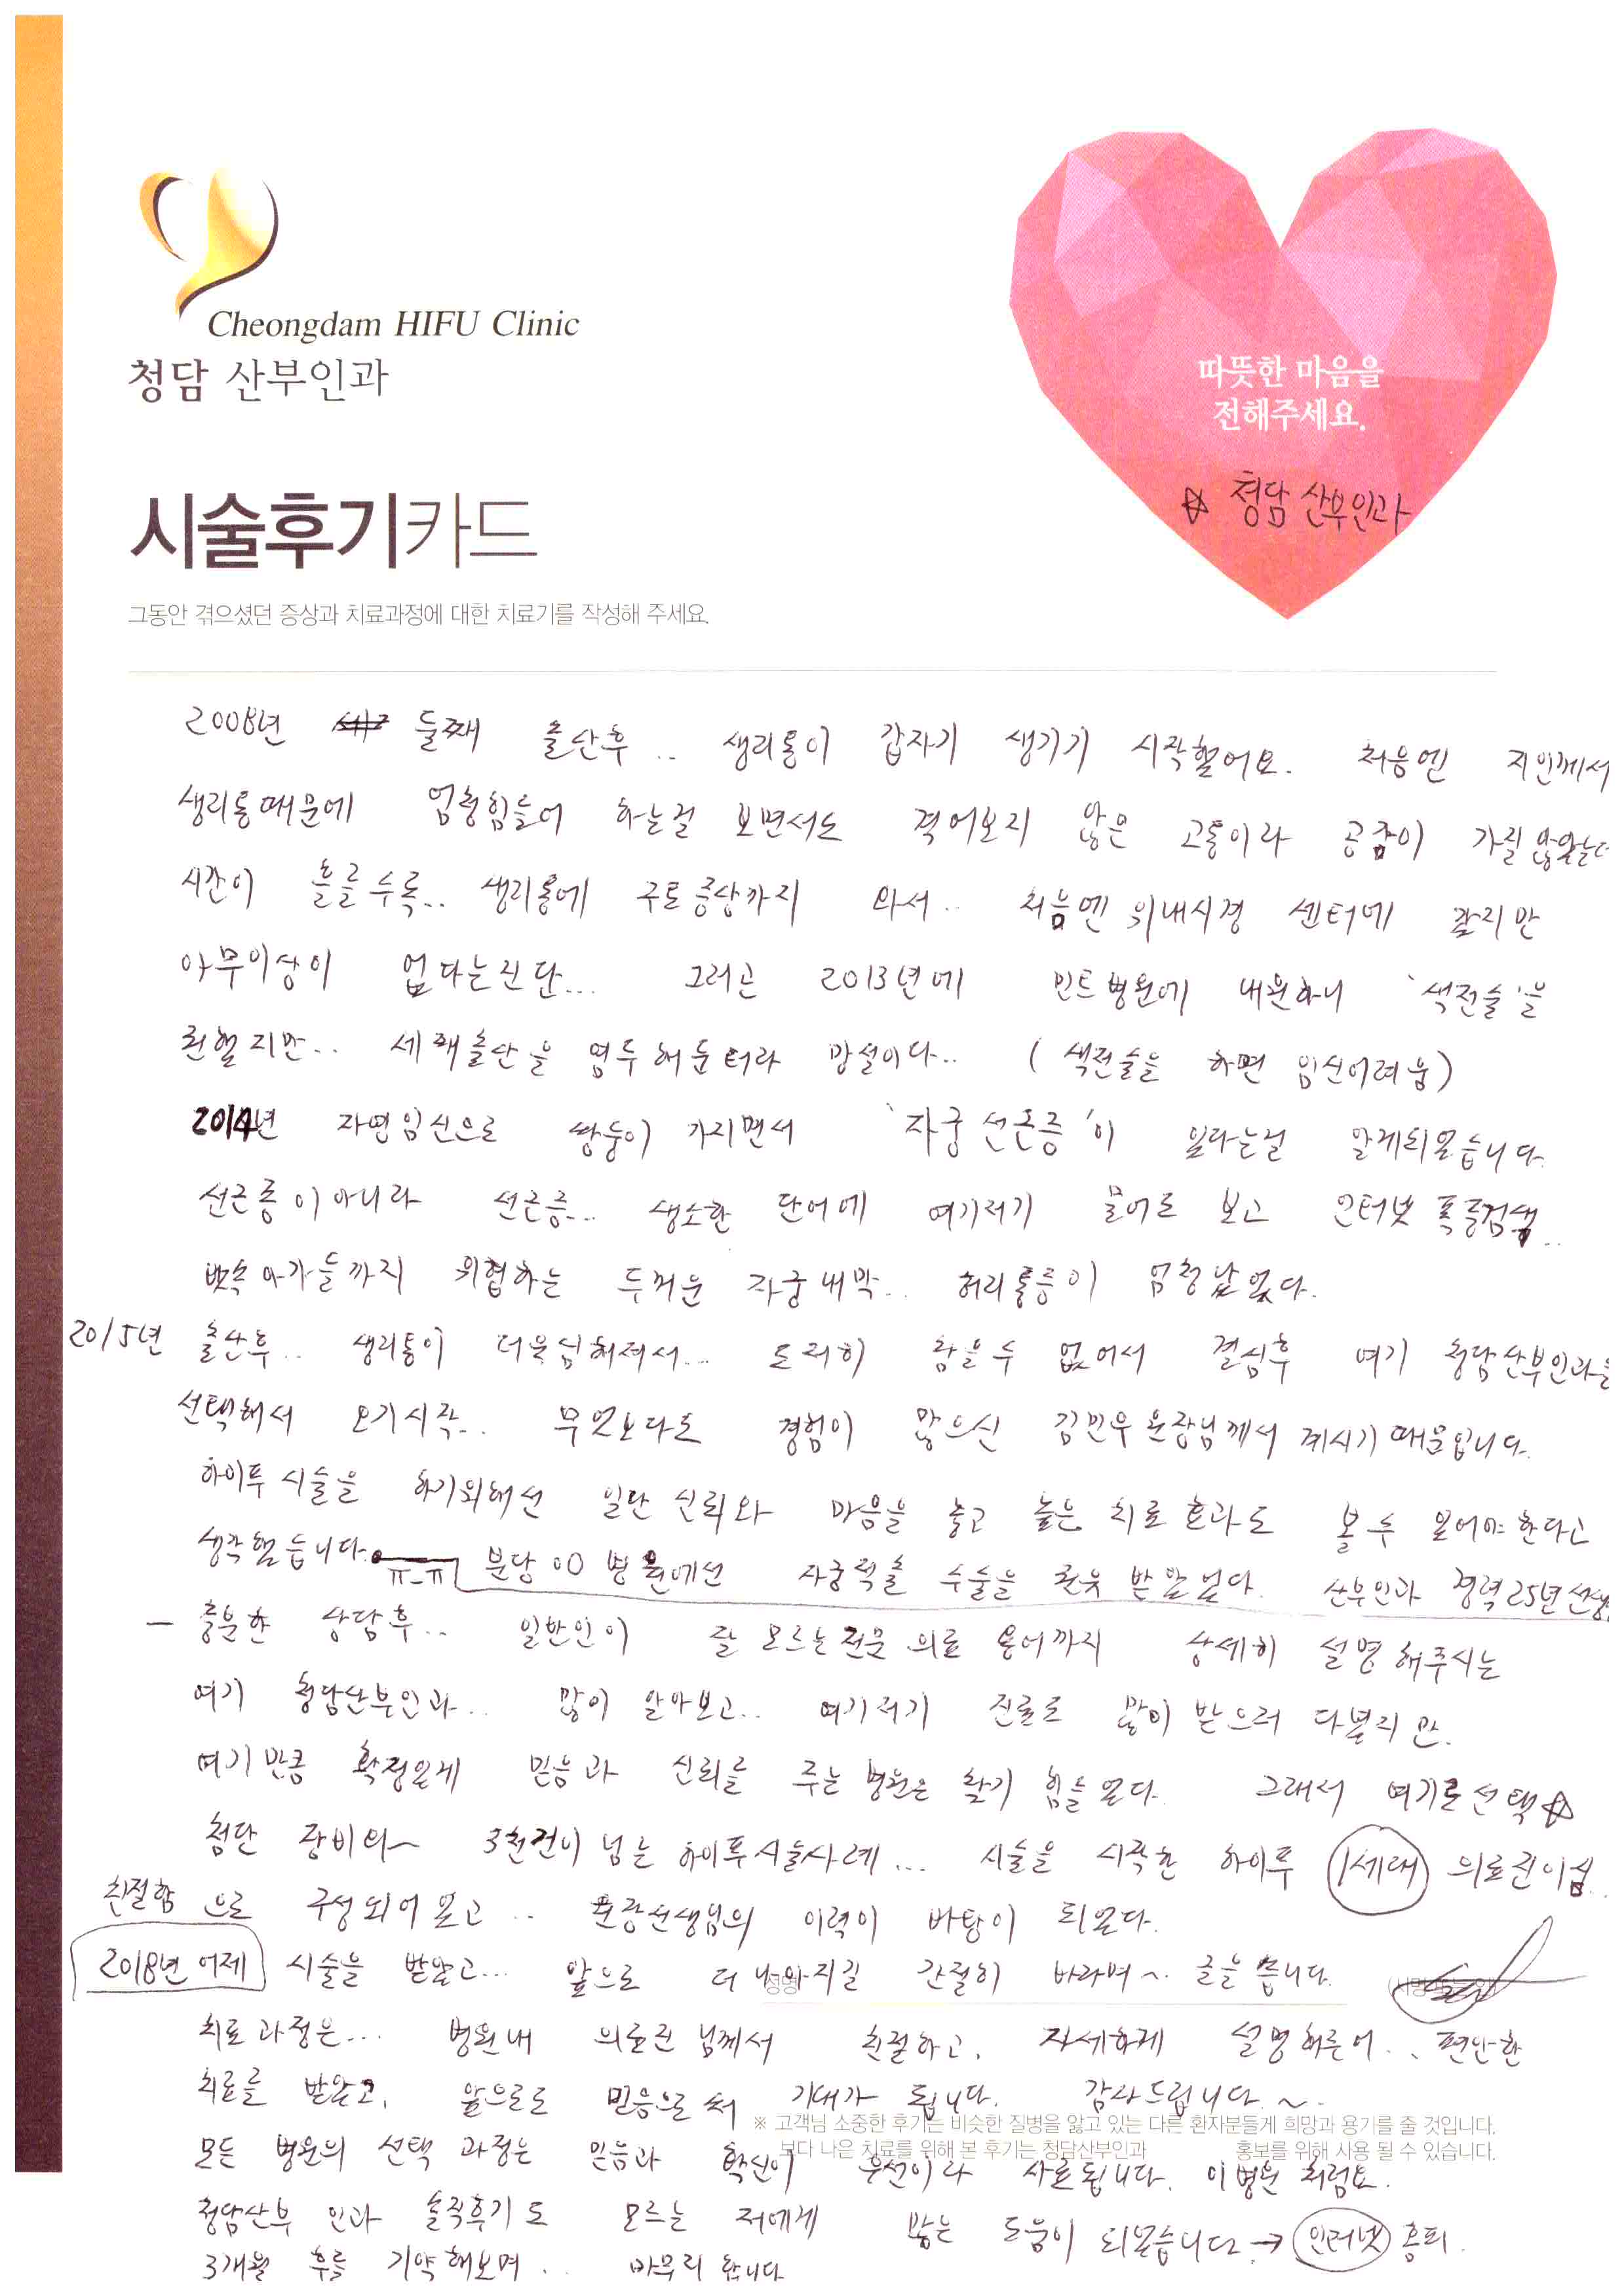 Cheongdam HIFU Clinic
청담 산부인과
따뜻한 마음을
전해주세요.
☆ 청담 산부인과
시술후기카드
그동안 겪으셨던 증상과 치료과정에 대한 치료기를 작성해 주세요.
2008년 둘째 출산후.. 생리통이 갑자기 생기기 시작했어요. 처음엔 지인께서
생리통때문에 엄청힘들어 하는걸 보면서도 격어보지 않은 고통이라 공감이 가질 않았는데
시간이 흐를수록.. 생리통에 구토증상까지 와서.. 처음엔 위내시경 센터에 갔지만
아무이상이 없다는진단... 그러곤 2013년에 민트병원에 내원하니 '색전술'을
권했지만.. 세째출산을 염두해둔터라 망설이다.. (색전술을 하면 임신어려움)
2014년 자연임신으로 쌍둥이 가지면서 '자궁선근증'이 있다는걸 알게되었습니다.
선근종이아니라 선근증... 생소한 단어에 여기저기 물어도 보고 인터넷 폭풍검색..
뱃속아가들까지 위협하는 두꺼운 자궁내막.. 허리통증이 엄청났었다.
2015년 출산후.. 생리통이 더욱심해져서... 도저히 참을수 없어서 결심후 여기 청담산부인과를
선택해서 오기시작.. 무엇보다도 경험이 많으신 김민우원장님께서 계시기 때문입니다.
하이푸시술을 하기위해선 일단 신뢰와 마음을 놓고 높은 치료효과도 볼수 있어야한다고
생각했습니다. ㅠ_ㅠ 분당 00 병원에선 자궁적출 수술을 권유 받았었다. 산부인과 경력25년선생
- 충분한 상담후.. 일반인이 잘 모르는전문 의료 용어까지 상세히 설명해주시는
여기 청담산부인과.. 많이 알아보고.. 여기저기 진료도 많이 받으러 다녔지만.
여기만큼 확정있게 믿음과 신뢰를 주는 병원은 찾기 힘들었다. 그래서 여기로선택☆
첨단 장비와~ 3천건이 넘는 하이푸시술사례... 시술을 시작한 하이푸 1세대 의료진이심..
친절함 으로 구성되어 있고.. 원장선생님의 이력이 바탕이 되었다.
2018년 어제 시술을 받았고... 앞으로 더 나아지길 간절히 바라며~. 글을 씁니다.
성명
치료과정은... 병원내 의료진님께서 친절하고, 자세하게 설명해주어.. 편안한
치료를 받았고, 앞으로도 믿음으로써 기대가 됩니다. 감사드립니다.~.
※ 고객님 소중한 후기는 비슷한 질병을 앓고 있는 다른 환자분들게 희망과 용기를 줄 것입니다.
보다 나은 치료를 위해 본 후기는 청담산부인과 홍보를 위해 사용 될 수 있습니다.
모든 병원의 선택 과정은 믿음과 확신이 우선이라 사료됩니다. 이병원 처럼요.
청담산부 인과 솔직후기도 모르는 저에게 많은 도움이 되었습니다 → 인터넷
3개월 후를 기약해보며.. 마무리 합니다